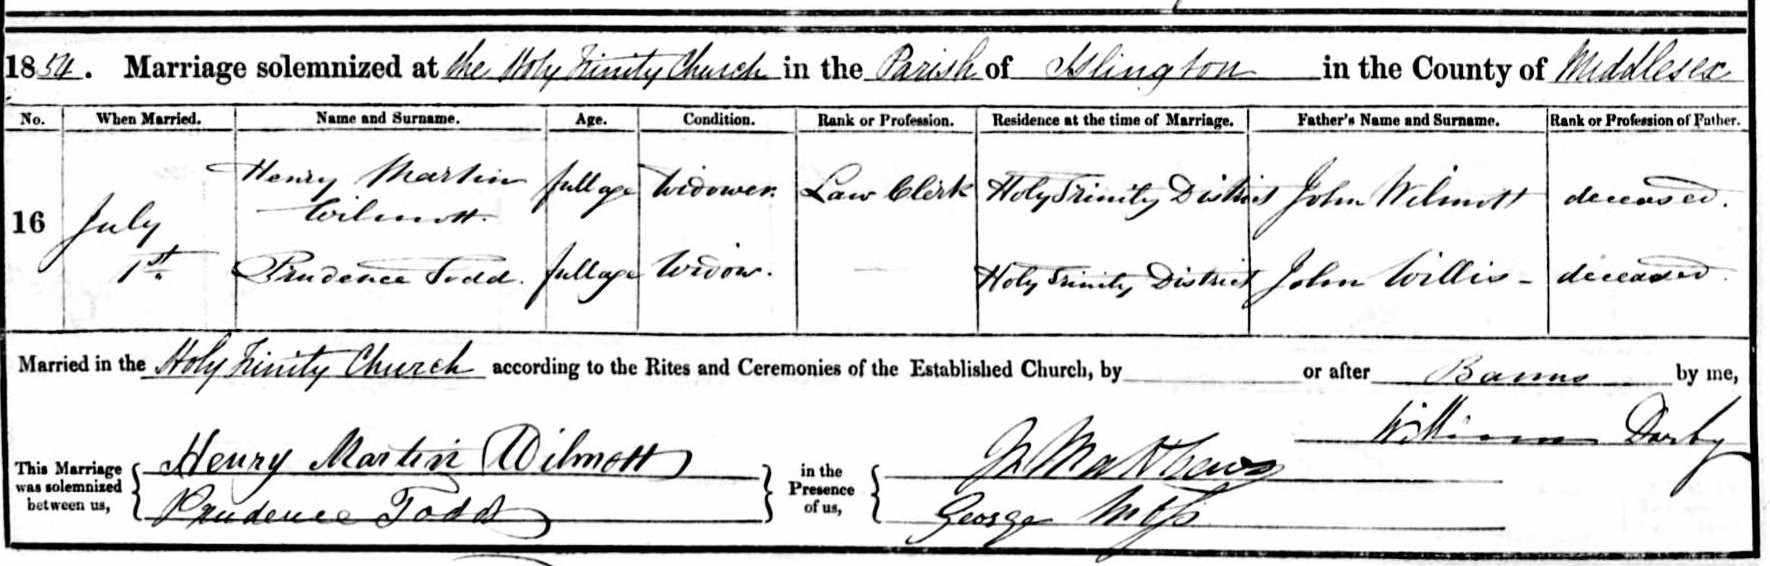 1854. Marriage solemnized at the Holy Trinity Church in the Parish of Islington in the County of Middlesex
No. When Married. Name and Surname. Age. Condition. Rank or Profession. Residence at the time of Marriage. Father's Name and Surname. Rank or Profession of Father.
16 July 1st. Henry Martin Wilmott. full age Widower. Law Clerk Holy Trinity District John Wilmott deceased.
Prudence Todd. full age Widow. — Holy Trinity District John Willis - deceased.
Married in the Holy Trinity Church according to the Rites and Ceremonies of the Established Church, by or after Banns by me,
William Darby
This Marriage was solemnized between us, { Henry Martin Wilmott } in the Presence of us, { Jn Matthews
Prudence Todd George